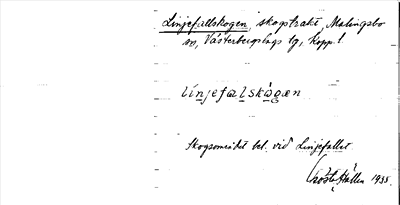 Linjefallskogen, skogstrakt, Malingsbo
sn, Västerbergslags tg, Kopp. l.
línjefalskògæn
Skogsområdet bel. vid Linjefallet
Gösta Hallén 1935.